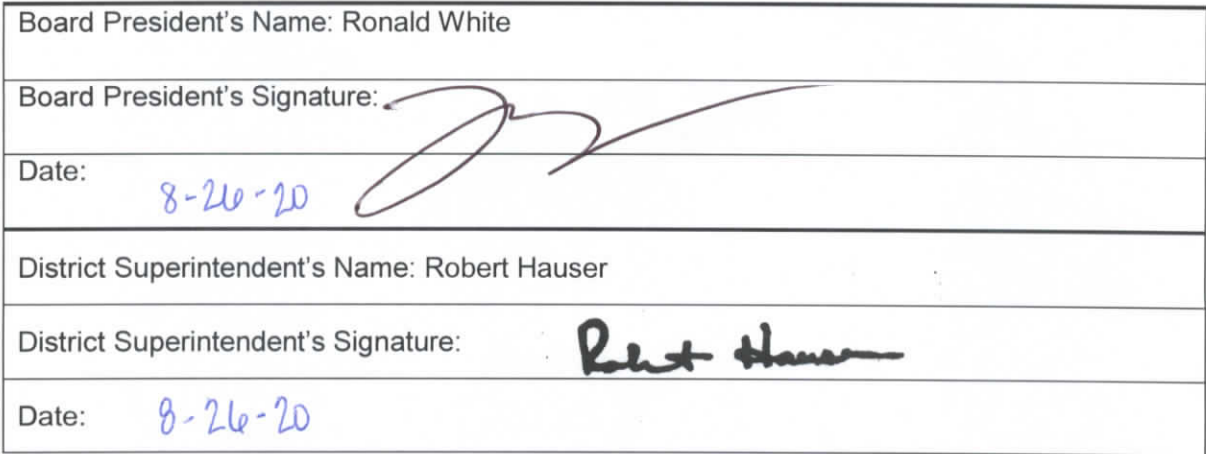 Board President's Name: Ronald White
Board President's Signature:
Date: 8-26-20
District Superintendent's Name: Robert Hauser
District Superintendent's Signature: Robert Hauser
Date: 8-26-20